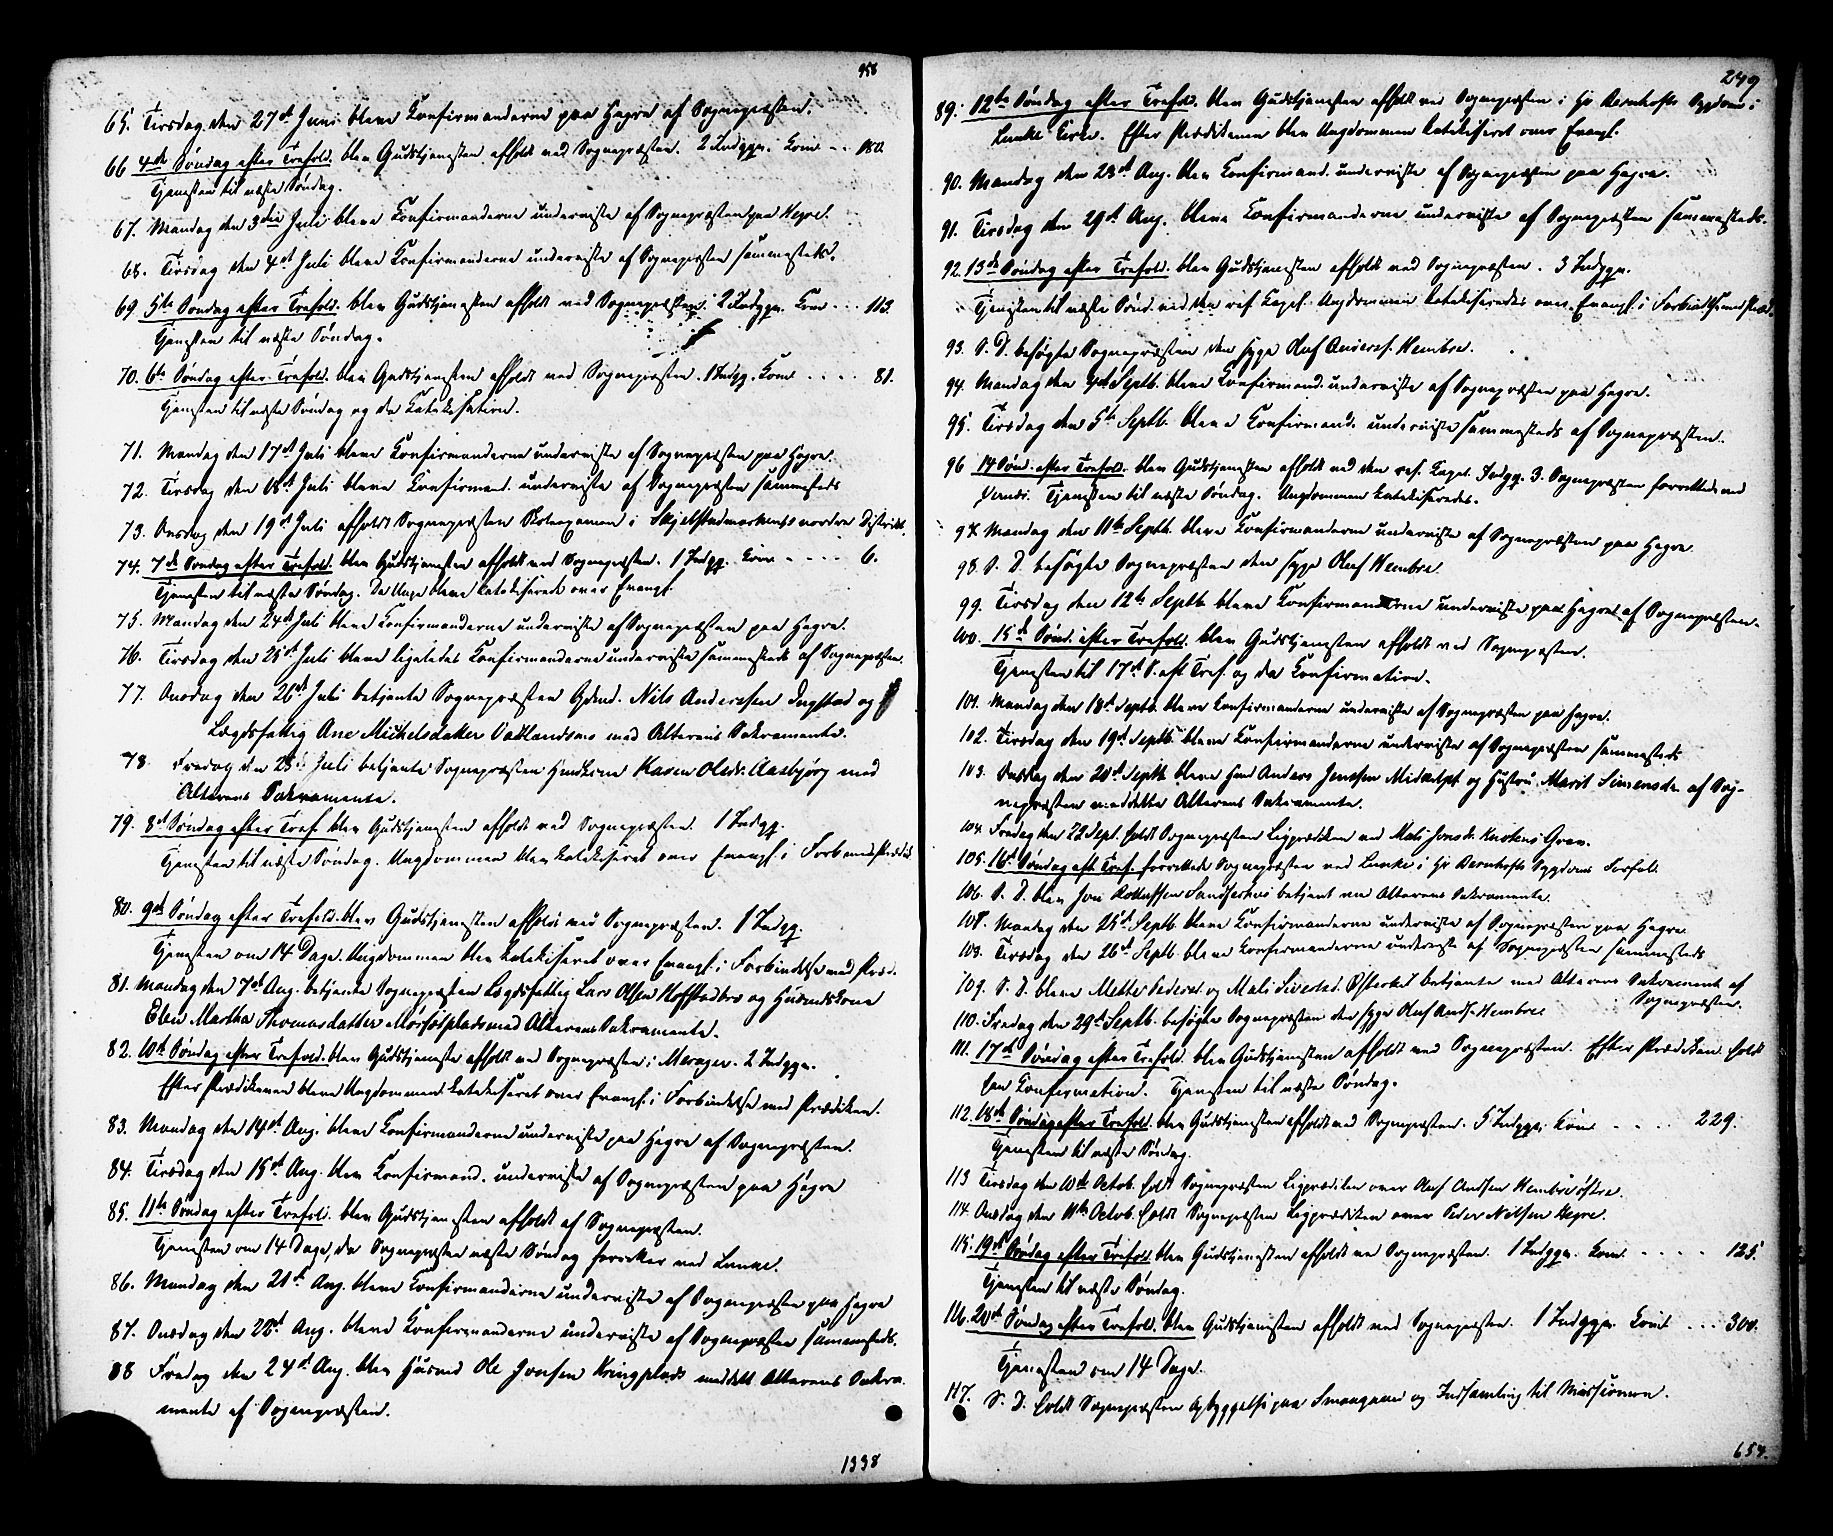 958
65. Tirsdag den 27de Juni bleve Konfirmanderne paa Hegre af Sognepræsten.
66 4de Søndag efter Trefold. blev Gudstjenesten afholdt ved Sognepræsten. 2 Indgg. Kom. - - 180.
Tjenesten til næste Søndag.
67. Mandag den 3die Juli bleve Konfirmanderne underviste af Sognepræsten paa Hegre.
68. Tirsdag den 4de Juli bleve Konfirmanderne underviste af Sognepræsten sammesteds.
69 5te Søndag efter Trefold. blev Gudstjenesten afholdt ved Sognepræsten. 2 Indggr. Kom - - - 113.
Tjenesten til næste Søndag.
70. 6te Søndag efter Trefold. blev Gudstjenesten afholdt ved Sognepræsten. 1 Indgg. Kom - - - - 81.
Tjenesten til næste Søndag og da Katekisation.
71. Mandag den 17de Juli bleve Konfirmanderne underviste af Sognepræsten paa Hegre.
72. Tirsdag den 18de Juli bleve Konfirmand. underviste af Sognepræsten sammesteds
73. Onsdag den 19de Juli afholdt Sognepræsten Skoleexamen i Skjelstadmarkens nordre Distrikt.
74. 7de Søndag efter Trefold. blev Gudstjenesten afholdt ved Sognepræsten. 1 Indgg. Kom - - - - 6.
Tjenesten til næste Søndag. De Unge bleve katekiserede over Evangl.
75. Mandag den 24de Juli bleve Konfirmanderne underviste af Sognepræsten paa Hegre.
76. Tirsdag den 25de Juli bleve ligeledes Konfirmanderne underviste sammesteds af Sognepræsten.
77. Onsdag den 26de Juli betjente Sognepræsten Gdmd. Nils Anderssen Ingstad og
Lægdsfattig Ane Mickelsdatter Vatlandsmo med Alterens Sakramente.
78. Fredag den 28de Juli betjente Sognepræsten Huuskone Karen Olsdr. Aasbjørg med
Alterens Sakramente.
79. 8de Søndag efter Tref. blev Gudstjenesten afholdt ved Sognepræsten. 1 Indgg.
Tjenesten til næste Søndag. Ungdommen blev katekiseret over Evangl. i Forb. med Prædik.
80. 9de Søndag efter Trefold. blev Gudstjenesten afholdt ved Sognepræsten. 1 Indgg.
Tjenesten om 14 Dage. Ungdommen blev katekiseret over Evangl. i Forbindelse med Præd.
81. Mandag den 7de Aug. betjente Sognepræsten Lægdsfattig Lars Olsen Hoffstadbro og Husmdskone
Elen Martha Thomasdatter med Alterens Sakramente.
82. 10de Søndag efter Trefold. blev Gudstjeneste afholdt ved Sognepræsten i Merager. 2 Indggr.
Efter Prædikenen bleve Ungdommen katekiseret over Evangl. i Forbindelse med Prædiken.
83. Mandag den 14de Aug. bleve Konfirmanderne underviste paa Hegre af Sognepræsten.
84. Tirsdag den 15de Aug. blev Konfirmand. underviste af Sognepræsten paa Hegre
85. 11te Søndag efter Trefold. blev Gudstjenesten afholdt af Sognepræsten.
Tjenesten om 14 Dage, da Sognepræsten næste Søndag forretter ved Lunke.
86. Mandag den 21de Aug. bleve Konfirmanderne underviste af Sognepræsten paa Hegre
87. Onsdag den 22de Aug. bleve Konfirmanderne underviste af Sognepræsten sammesteds.
88 Fredag den 24de Aug. blev Husmd Ole Jonsen Kringplads meddelt Alterens Sakra-
mente af Sognepræsten.
1338
249
89. 12te Søndag efter Trefold. blev Gudstjenesten afholdt ved Sognepræsten i Hr Bernhofts Sygdom i
Lunke Kirke. Efter Prædikenen blev Ungdommen katekiseret over Evangl.
90. Mandag den 28de Aug. blev Konfirmand. underviste af Sognepræsten paa Hegre.
91. Tirsdag den 29de Aug. bleve Konfirmanderne underviste af Sognepræsten sammesteds.
92. 13de Søndag efter Trefold. blev Gudstjenesten afholdt ved Sognepræsten. 3 Indggr.
Tjenesten til næste Sønd. ved den res. Kapel. Ungdommen katekiseredes over Evangl. i Forbindelse med Præd.
93. S. D. besøgte Sognepræsten den syge Oluf Anders. Hembre.
94. Mandag den 4de Septb. bleve Konfirmand. underviste af Sognepræsten paa Hegre.
95. Tirsdag den 5te Septb. bleve Konfirmand. underviste sammesteds af Sognepræsten.
96 14 Sønd. efter Trefold. blev Gudstjenesten afholdt ved den res. Kapel. Indgg. 3. Sognepræsten forrettede ved
Tjenesten til næste Søndag. Ungdommen katekiseredes.
97. Mandag den 11te Septb. bleve Konfirmanderne underviste af Sognepræsten paa Hegre.
98. S. D. besøgte Sognepræsten den syge Oluf Hembre.
99. Tirsdag den 12te Septb. bleve Konfirmanderne underviste paa Hegre af Sognepræsten.
100. 15de Sønd. efter Trefold. blev Gudstjenesten afholdt ved Sognepræsten.
Tjenesten til 17de S. eft Tref. og da Konfirmation.
101. Mandag den 18de Septb. bleve Konfirmanderne underviste af Sognepræsten paa Hegre.
102. Tirsdag den 19de Septb. bleve Konfirmanderne underviste af Sognepræsten sammesteds
103. Onsdag den 20de Septb. bleve Hmd Anders Jenssen Midkilpl. og Hustru Marit Simensdr. af Sog-
nepræsten meddelte Alterens Sakramente.
104. Fredag den 22 Sept. holdt Sognepræsten Ligprædiken ved Mali Jonsdr. Grav.
105. 16de Søndag eft. Tref. forrettede Sognepræsten ved Lunke i Hr Bernhofts Sygdoms Forfald.
106. S. D. blev Jon betjent med Alterens Sakramente.
107. Mandag den 25de Septb. bleve Konfirmanderne underviste af Sognepræsten paa Hegre.
108. Tirsdag den 26de Septb. bleve Konfirmanderne underviste af Sognepræsten sammesteds
109. S. D. bleve Mette Pedersd. og Mali Sivertsd. betjente med Alterens Sakrament af
Sognepræsten.
110. Fredag den 29de Septb. besøgte Sognepræsten den syge Oluf Ands. Hembre
111. 17de Søndag efter Trefold. blev Gudstjenesten afholdt ved Sognepræsten. Efter Prædiken holdt
han Konfirmation. Tjenesten til næste Søndag.
112. 18de Søndag efter Trefold. blev Gudstjenesten afholdt ved Sognepræsten. 5 Indggr. Kom - - - - 229.
Tjenesten til næste Søndag.
113 Tirsdag den 10de Octob. holdt Sognepræsten Ligprædiken over Oluf Andsen Hembre østre.
114. Onsdag den 11te Octob. holdt Sognepræsten Ligprædiken over Peder Nilsen Hegre.
115. 19de Søndag efter Trefold. blev Gudstjenesten afholdt ved Sognepræsten. 1 Indggr. Kom. - - - - 125.
Tjenesten til næste Søndag.
116. 20de Søndag efter Trefold. blev Gudstjenesten afholdt ved Sognepræsten. 1 Indggr. Kom - - - 300.
Tjenesten om 14 Dage.
117. S. D. holdt Sognepræsten Opbyggelse paa og Indsamling til Missionen.
654.